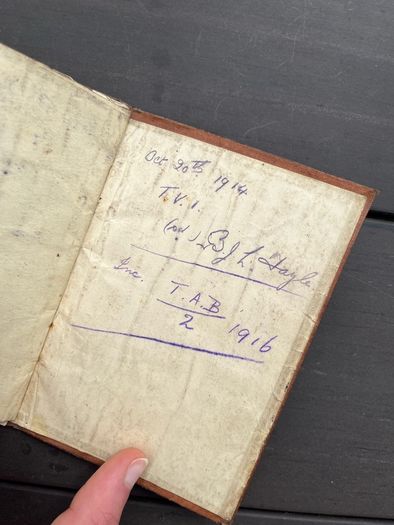 Oct 20th 1914
T.V.1.
(sd) B J L Hayle
Inc.
T.A.B
2
1916